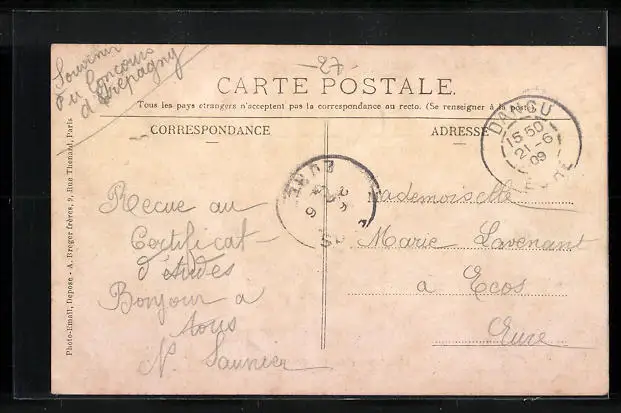 Souvenir
du Concours
d'Etrepagny
27
CARTE POSTALE.
Tous les pays étrangers n'acceptent pas la correspondance au recto. (Se renseigner à la poste)
CORRESPONDANCE
ADRESSE
DANGU
15 50
21 - 6
09
EURE
EURE
Recue au
Certificat
d'études
Bonjour a
tous
N. Saunier
Mademoiselle
Marie Lavenant
a Ecos
Eure
Photo-Email, Déposé - A. Breger frères, 9, Rue Thenard, Paris